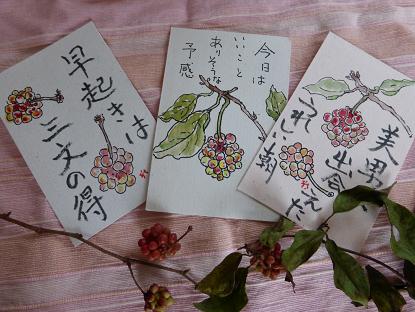 早起きは
三文の得
今日は
いいこと
ありそうな
予感
美男に
出合えた
うれしい朝